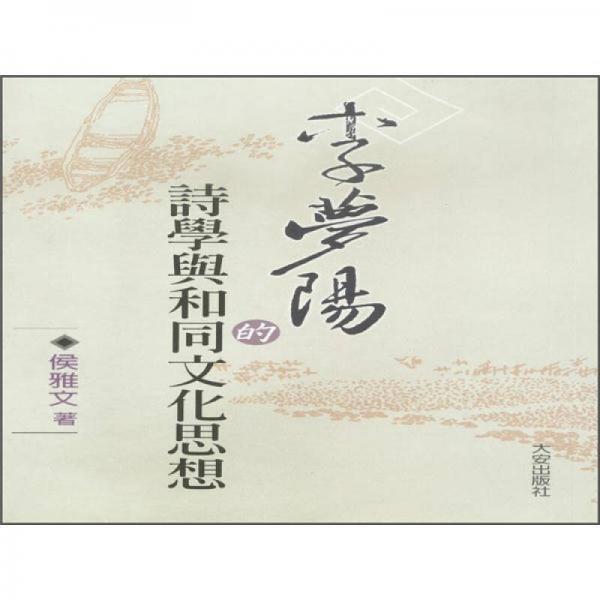 李夢陽
的
詩學與和同文化思想
侯雅文 著
大安出版社